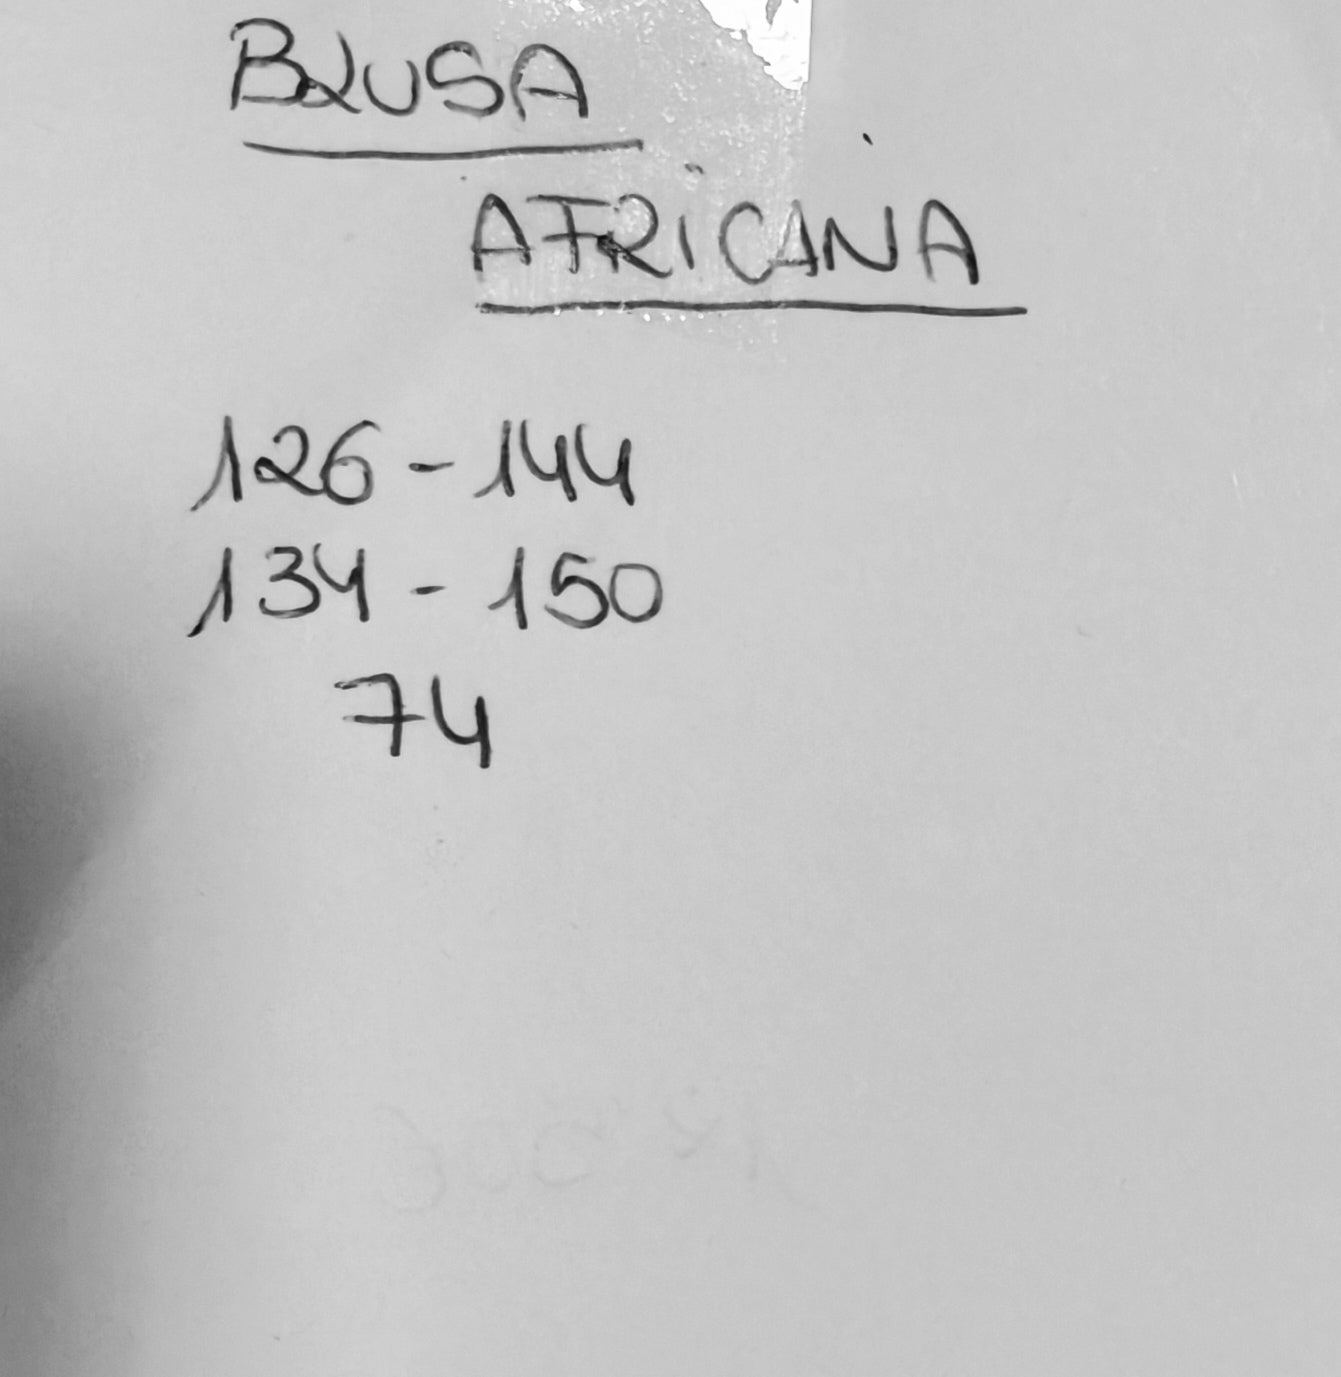 BLUSA
AFRICANA
126 - 144
134 - 150
74